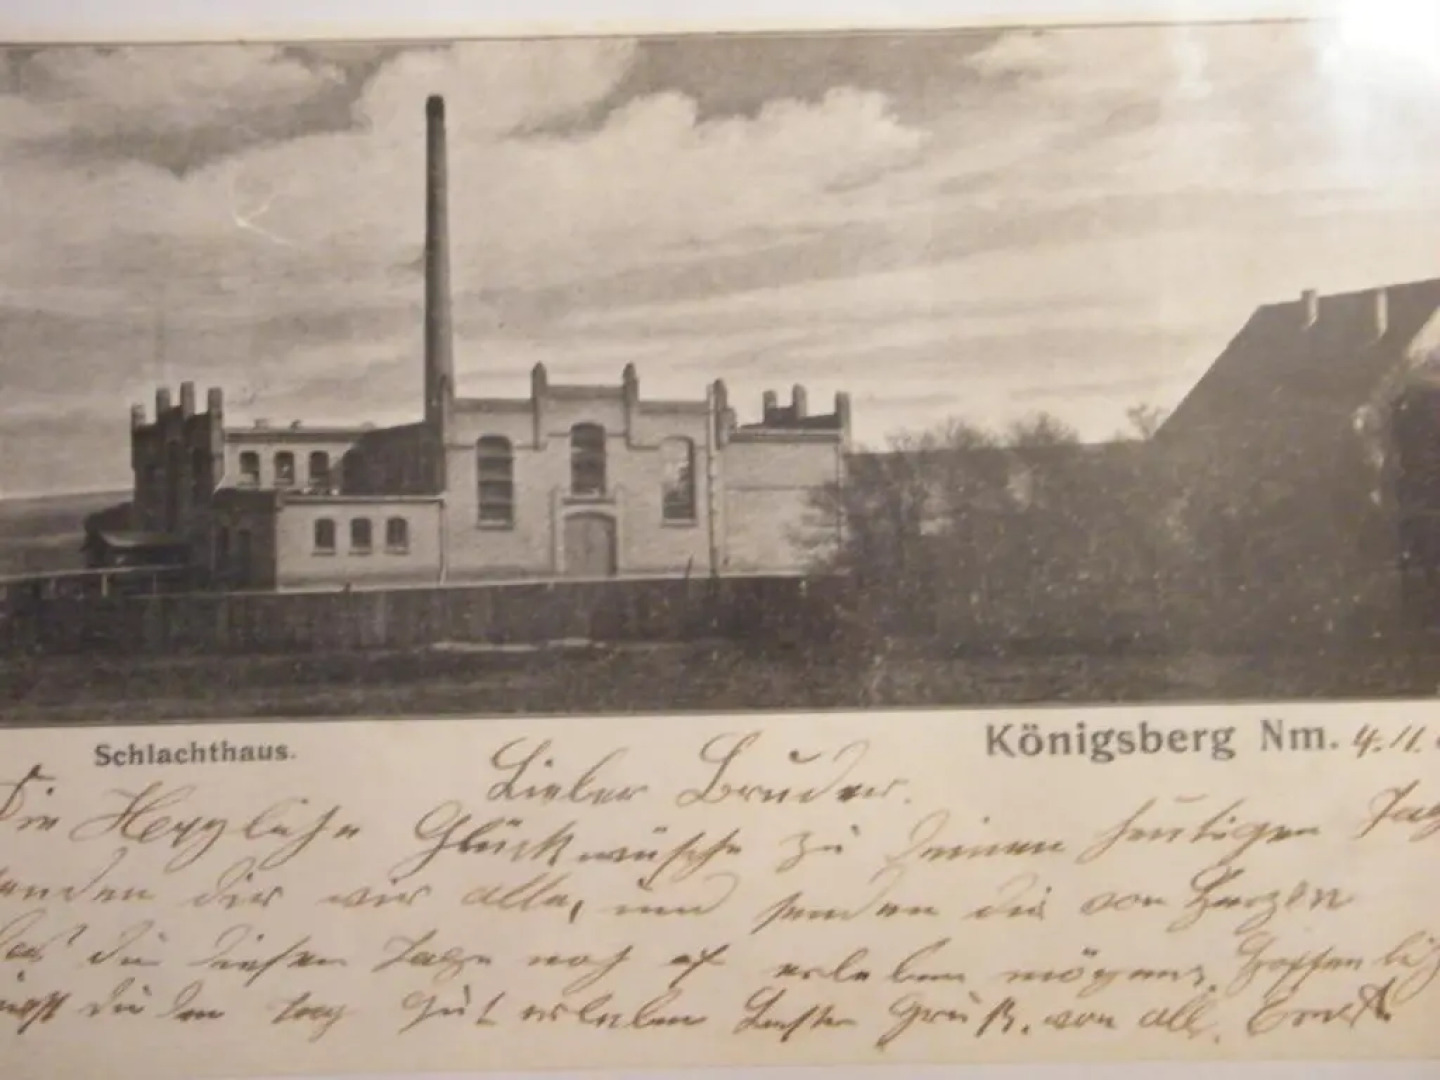 Schlachthaus.
Königsberg Nm. 4.11.
Lieber Bruder.
Die Herzliche Glückwünsche zu deinen heutigen Tag
senden dir wir alle, und senden dir von Herzen
das du diesen Tage noch oft erleben mögens, Hoffentlich
du den Tag gut erleben Besten Gruß. von alle. Ernst.